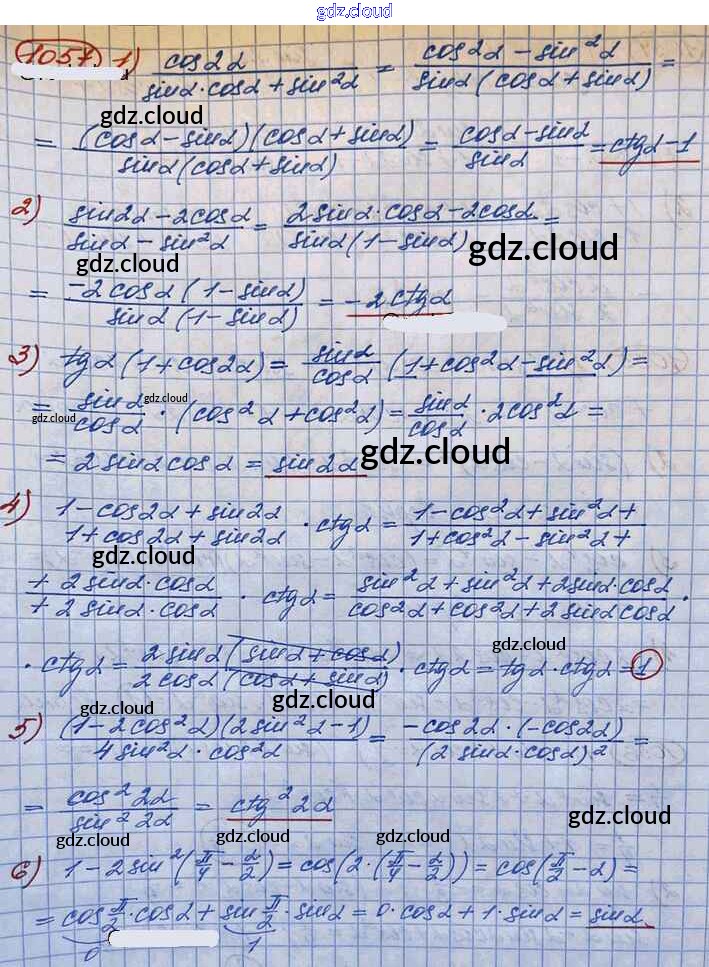 gdz.cloud
1057) 1) cos2α / (sinα·cosα + sin²α) = (cos2α − sin²α) / (sinα(cosα + sinα)) =
gdz.cloud
= (cosα − sinα)(cosα + sinα) / (sinα(cosα + sinα)) = (cosα − sinα) / sinα = ctgα − 1
2) (sin2α − 2cosα) / (sinα − sin²α) = (2sinα·cosα − 2cosα) / (sinα(1 − sinα)) =
gdz.cloud gdz.cloud
= −2cosα(1 − sinα) / (sinα(1 − sinα)) = −2ctgα
3) tgα(1 + cos2α) = sinα/cosα (1 + cos²α − sin²α) =
gdz.cloud gdz.cloud
= sinα/cosα · (cos²α + cos²α) = sinα/cosα · 2cos²α =
= 2sinαcosα = sin2α
gdz.cloud
4) (1 − cos2α + sin2α) / (1 + cos2α + sin2α) · ctgα = (1 − cos²α + sin²α +) / (1 + cos²α − sin²α +
gdz.cloud
(+ 2sinα·cosα) / (+ 2sinα·cosα) · ctgα = (sin²α + sin²α + 2sinα·cosα) / (cos2α + cos²α + 2sinαcosα) ·
gdz.cloud
· ctgα = 2sinα(sinα + cosα) / (2cosα(cosα + sinα)) · ctgα = tgα·ctgα = 1
gdz.cloud gdz.cloud
5) (1 − 2cos²α)(2sin²α − 1) / (4sin²α·cos²α) = −cos2α·(−cos2α) / (2sinα·cosα)² =
= cos²2α / sin²2α = ctg²2α
gdz.cloud
gdz.cloud gdz.cloud gdz.cloud
6) 1 − 2sin²(π/4 − α/2) = cos(2·(π/4 − α/2)) = cos(π/2 − α) =
= cos π/2 · cosα + sin π/2 · sinα = 0·cosα + 1·sinα = sinα.
0 1
gdz.cloud